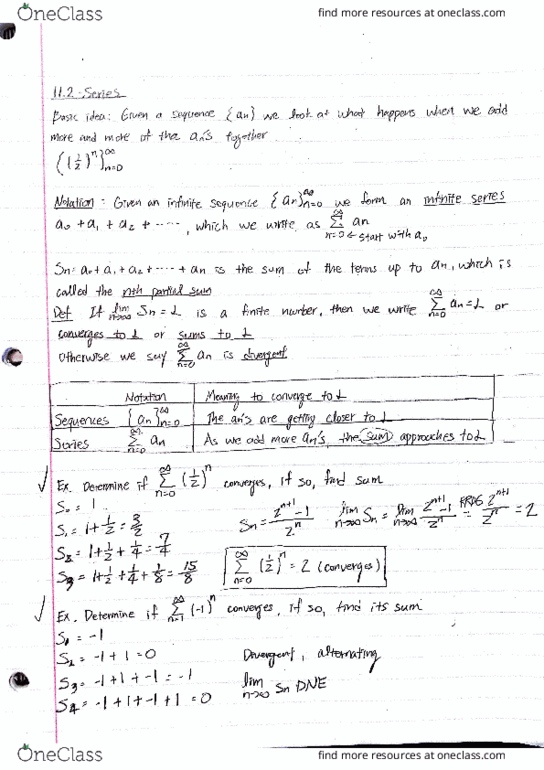 OneClass
find more resources at oneclass.com
11.2 Series
Basic idea: Given a sequence {an} we look at what happens when we add
more and more of the an's together
{(1/2)^n}^∞ n=0
Notation: Given an infinite sequence {an}^∞ n=0 we form an infinite series
a0 + a1 + a2 + ....., which we write as ∞ Σ n=0 an
n=0 ← start with a0
Sn = a0 + a1 + a2 + ..... + an is the sum of the terms up to an, which is
called the nth partial sum
Def If lim n→∞ Sn = L is a finite number, then we write ∞ Σ n=0 an = L or
converges to L or sums to L
Otherwise we say ∞ Σ n=0 an is divergent
Notation Meaning to converge to L
Sequences {an}^∞ n=0 The an's are getting closer to L
Series ∞ Σ n=0 an As we add more an's, the sum approaches to L
√ Ex. Determine if ∞ Σ n=0 (1/2)^n converges, if so, find sum
S0 = 1
S1 = 1 + 1/2 = 3/2 Sn = (2^(n+1) - 1)/2^n lim n→∞ Sn = lim n→∞ (2^(n+1) - 1)/2^n = 2^(n+1)/2^n = 2
S2 = 1 + 1/2 + 1/4 = 7/4
S3 = 1 + 1/2 + 1/4 + 1/8 = 15/8 ∞ Σ n=0 (1/2)^n = 2 (converges)
√ Ex. Determine if ∞ Σ n=1 (-1)^n converges, if so, find its sum
S1 = -1
S2 = -1 + 1 = 0 Divergent, alternating
S3 = -1 + 1 + -1 = -1 lim n→∞ Sn DNE
S4 = -1 + 1 + -1 + 1 = 0
OneClass
find more resources at oneclass.com